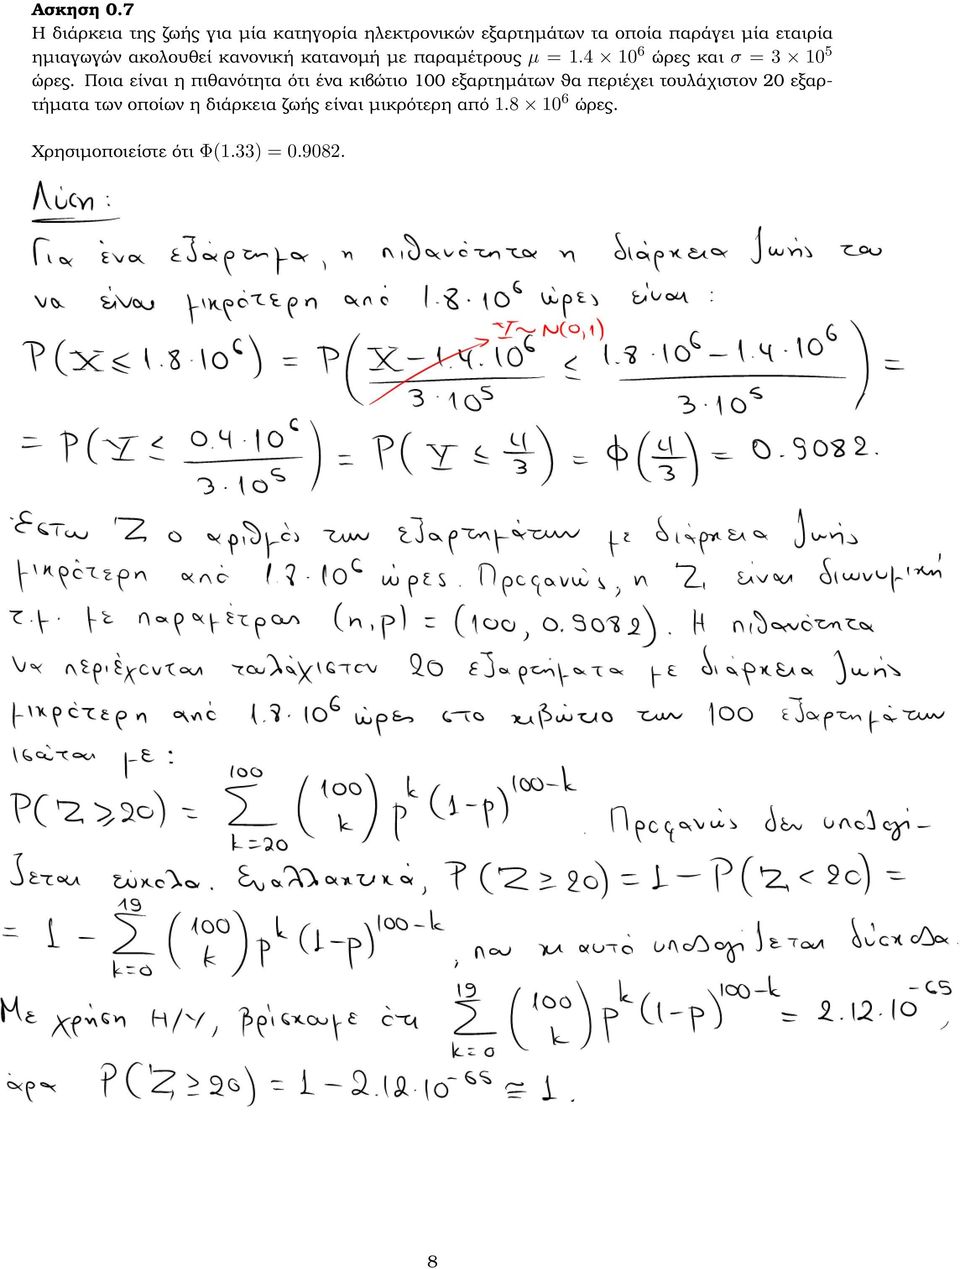 Ασκηση 0.7
Η διάρκεια της ζωής για μία κατηγορία ηλεκτρονικών εξαρτημάτων τα οποία παράγει μία εταιρία
ημιαγωγών ακολουθεί κανονική κατανομή με παραμέτρους μ = 1.4 × 10^6 ώρες και σ = 3 × 10^5
ώρες. Ποια είναι η πιθανότητα ότι ένα κιβώτιο 100 εξαρτημάτων θα περιέχει τουλάχιστον 20 εξαρ-
τήματα των οποίων η διάρκεια ζωής είναι μικρότερη από 1.8 × 10^6 ώρες.
Χρησιμοποιείστε ότι Φ(1.33) = 0.9082.
Λύση:
Για ένα εξάρτημα, η πιθανότητα η διάρκεια ζωής του
να είναι μικρότερη από 1.8·10^6 ώρες είναι:
Y~N(0,1)
P(X ≤ 1.8·10^6) = P((X-1.4·10^6)/(3·10^5) ≤ (1.8·10^6-1.4·10^6)/(3·10^5)) =
= P(Y ≤ (0.4·10^6)/(3·10^5)) = P(Y ≤ 4/3) = Φ(4/3) = 0.9082.
Έστω Z ο αριθμός των εξαρτημάτων με διάρκεια ζωής
μικρότερη από 1.8·10^6 ώρες. Προφανώς, η Z είναι διωνυμική
τ.μ. με παραμέτρους (n,p) = (100, 0.9082). Η πιθανότητα
να περιέχονται τουλάχιστον 20 εξαρτήματα με διάρκεια ζωής
μικρότερη από 1.8·10^6 ώρες στο κιβώτιο των 100 εξαρτημάτων
ισούται με:
P(Z ≥ 20) = Σ_{k=20}^{100} (100 k) p^k (1-p)^{100-k}. Προφανώς δεν υπολογί-
ζεται εύκολα. Εναλλακτικά, P(Z ≥ 20) = 1 - P(Z < 20) =
= 1 - Σ_{k=0}^{19} (100 k) p^k (1-p)^{100-k}, που κι αυτό υπολογίζεται δύσκολα.
Με χρήση Η/Υ, βρίσκουμε ότι Σ_{k=0}^{19} (100 k) p^k (1-p)^{100-k} = 2.12·10^{-65},
άρα P(Z ≥ 20) = 1 - 2.12·10^{-65} ≅ 1.
8